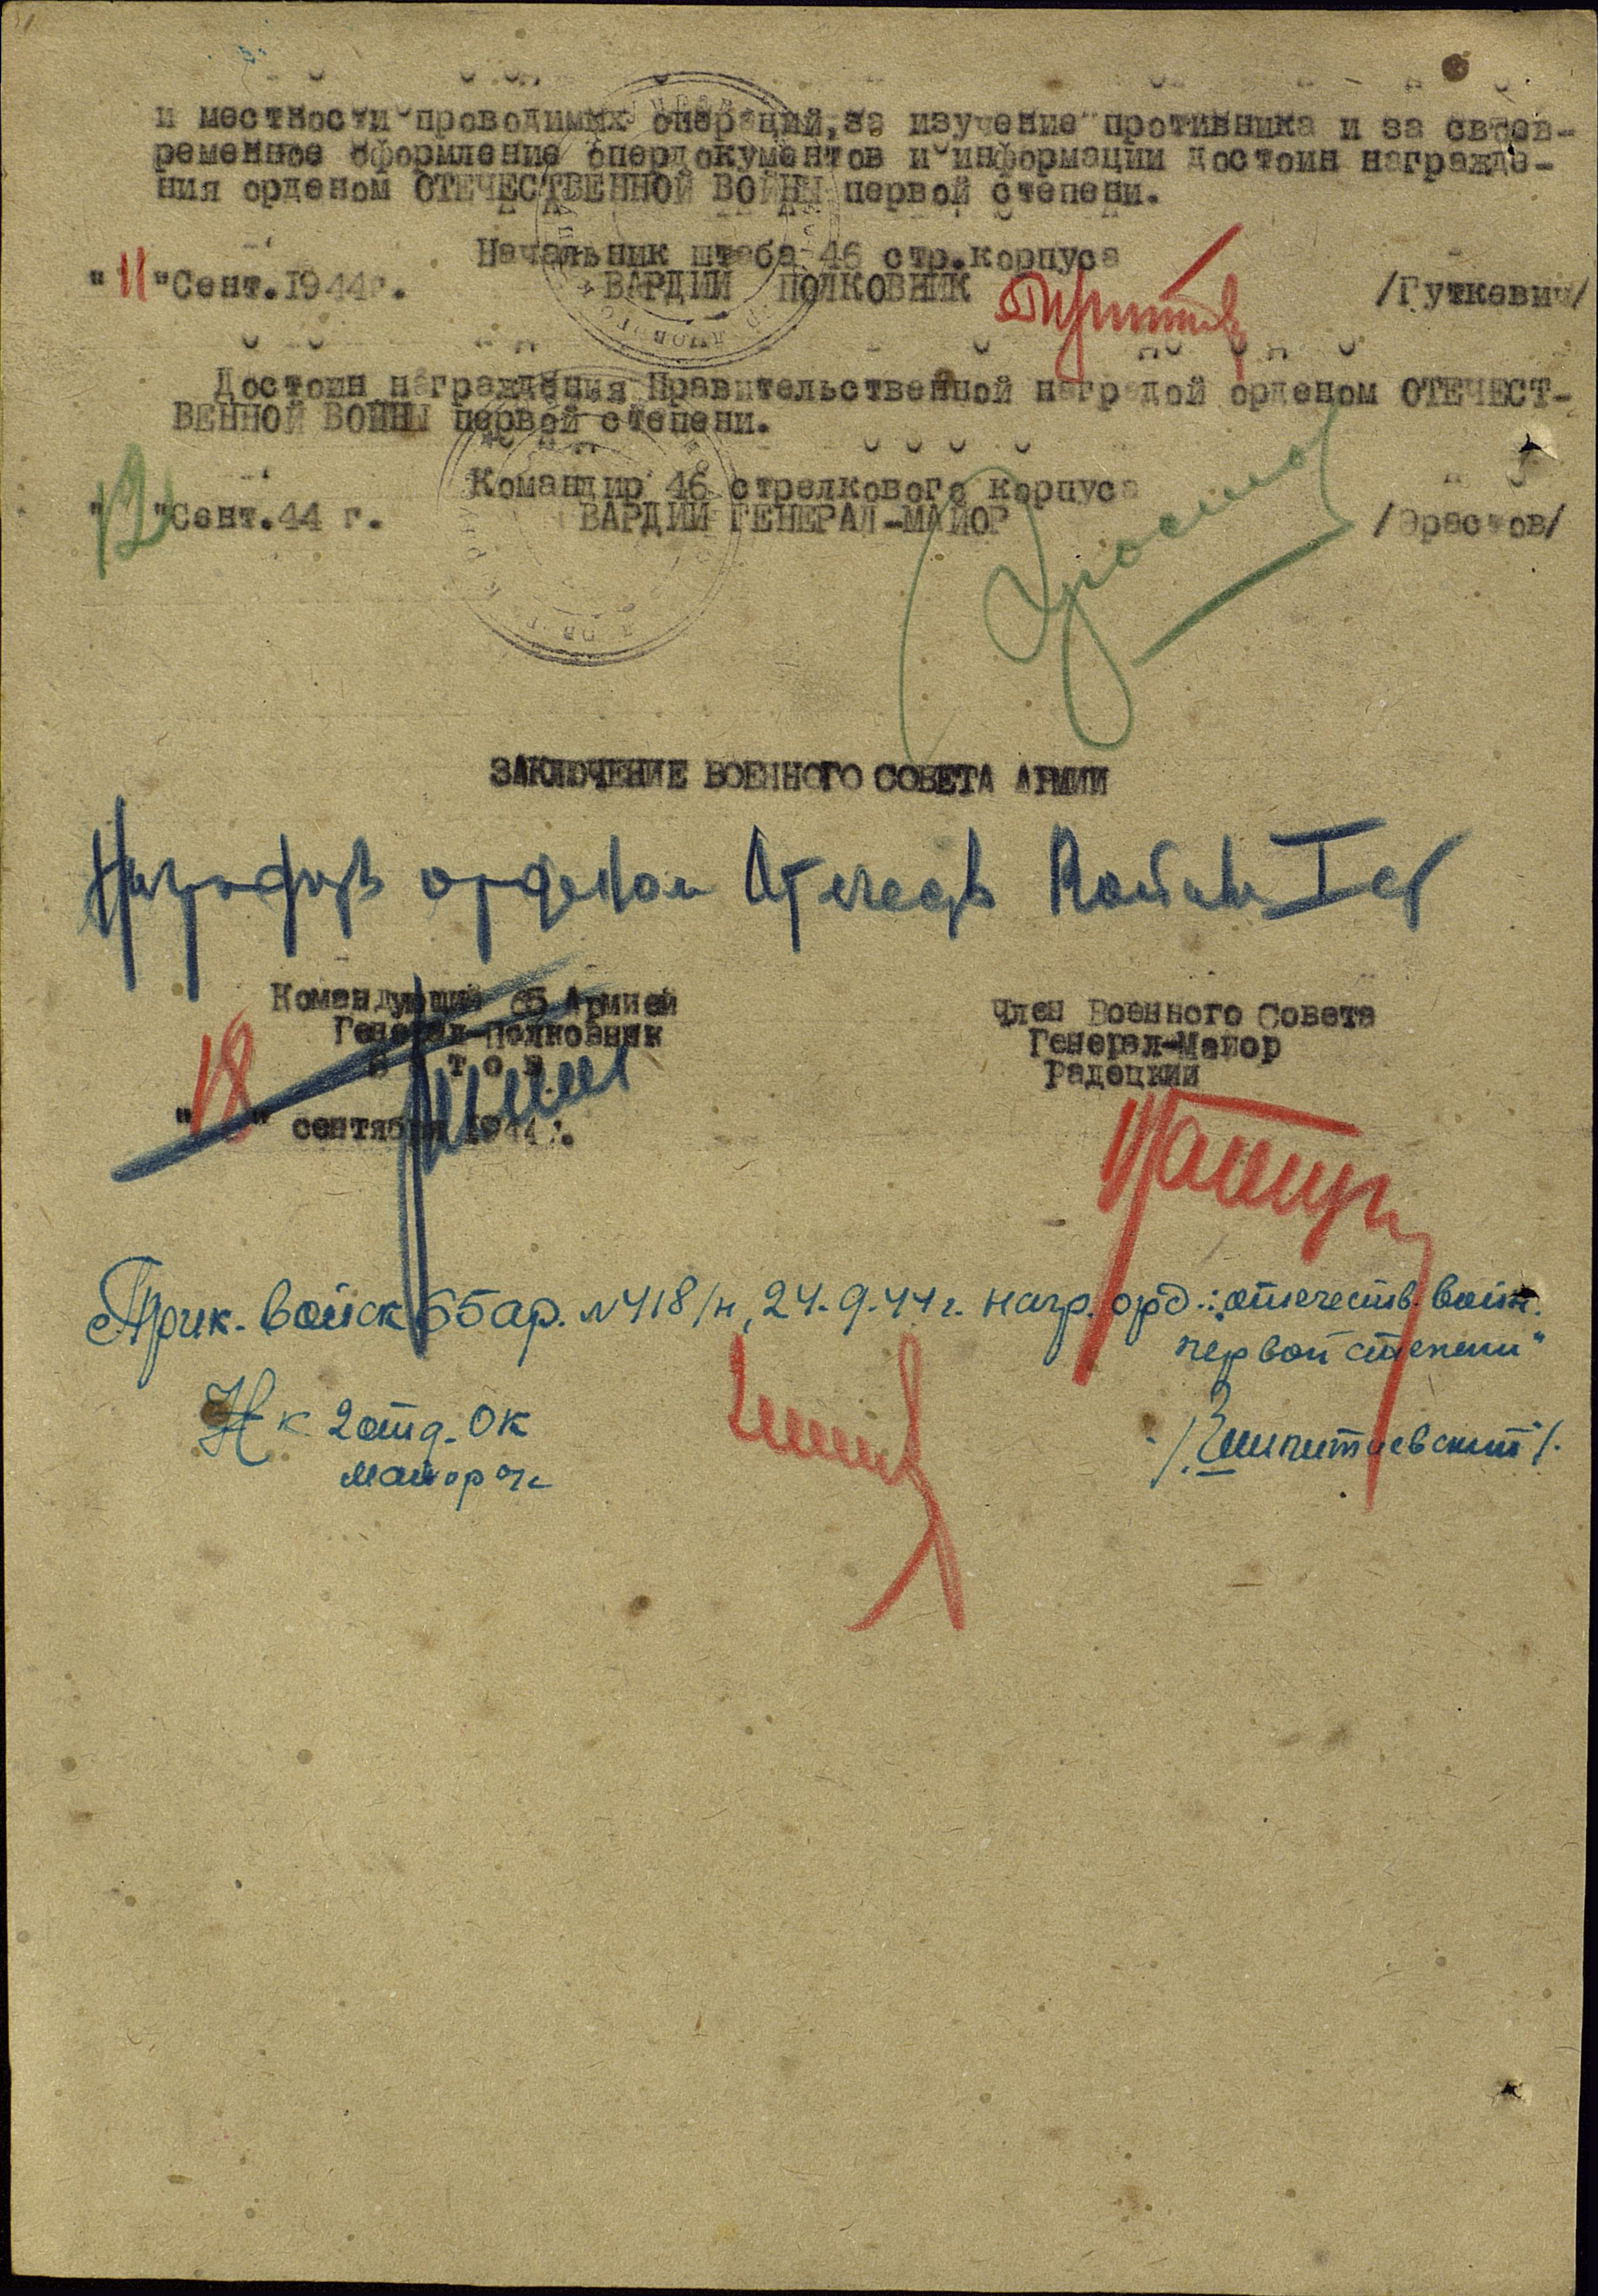 и местности проводимых операций, за изучение противника и за своев-
ременное оформление опердокументов и информации достоин награжде-
ния орденом ОТЕЧЕСТВЕННОЙ ВОЙНЫ первой степени.
Начальник штаба 46 стр.корпуса
"11"Сент.1944г. ВАРДИИ ПОЛКОВНИК /Гуткевич/
Достоин награждения Правительственной наградой орденом ОТЕЧЕСТ-
ВЕННОЙ ВОЙНЫ первой степени.
Командир 46 стрелкового корпуса
"12"Сент.44 г. ВАРДИИ ГЕНЕРАЛ-МАЙОР /Эрастов/
Эрастов
ЗАКЛЮЧЕНИЕ ВОЕННОГО СОВЕТА АРМИИ
орденом Отечеств Войны I ст
Командующий 65 Армией
Генерал-Полковник
Батов
"18" сентября 1944 г.
Член Военного Совета
Генерал-Майор
Радецкий
Прик. войск 65 ар. № 418/н, 24.9.44 г. нагр. орд. "отечеств. войн.
первой степени"
НК 2 отд. ОК
майор